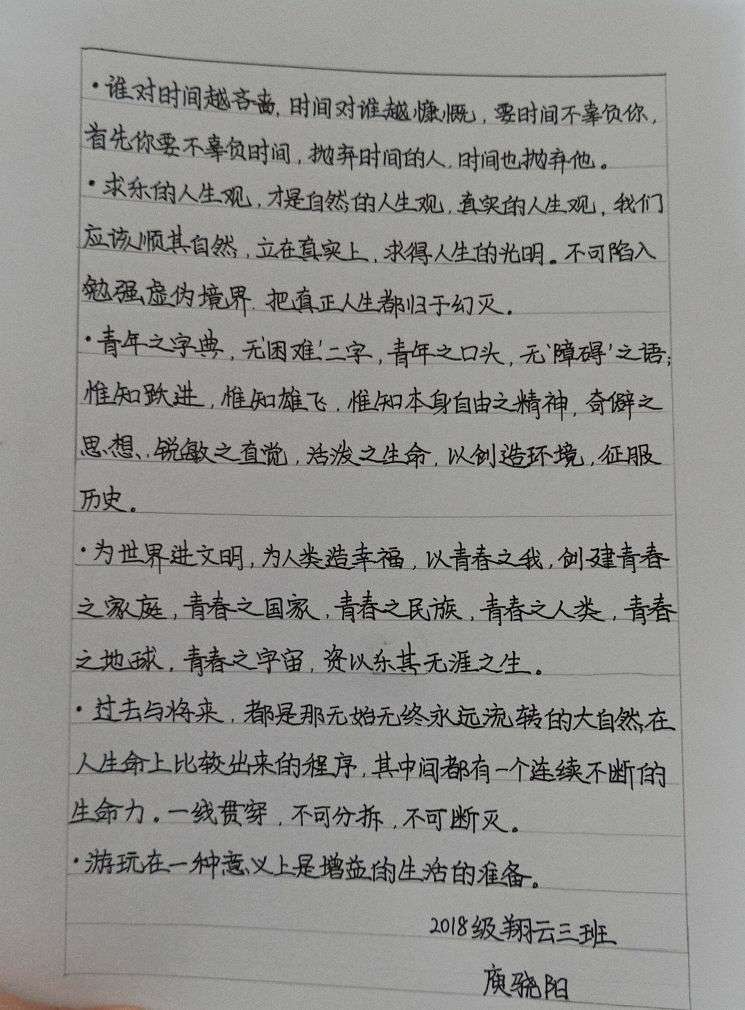 ·谁对时间越吝啬,时间对谁越慷慨,要时间不辜负你,
首先你要不辜负时间,抛弃时间的人,时间也抛弃他。
·求乐的人生观,才是自然的人生观,真实的人生观,我们
应该顺其自然,立在真实上,求得人生的光明。不可陷入
勉强虚伪境界,把真正人生都归于幻灭。
·青年之字典,无‘困难’二字,青年之口头,无‘障碍’之语;
惟知跃进,惟知雄飞,惟知本身自由之精神,奇僻之
思想、锐敏之直觉,活泼之生命,以创造环境,征服
历史。
·为世界进文明,为人类造幸福,以青春之我,创建青春
之家庭,青春之国家,青春之民族,青春之人类,青春
之地球,青春之宇宙,资以乐其无涯之生。
·过去与将来,都是那无始无终永远流转的大自然,在
人生命上比较出来的程序,其中间都有一个连续不断的
生命力。一线贯穿,不可分拆,不可断灭。
·游玩在一种意义上是增益的生活的准备。
2018级翔云三班
庾骁阳